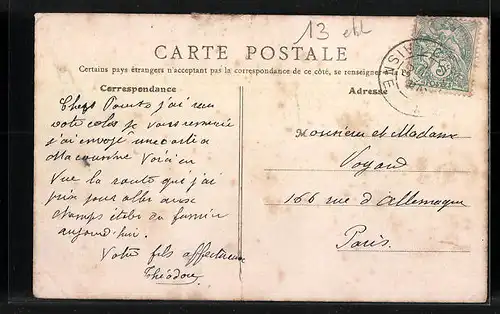 13
CARTE POSTALE
Certains pays étrangers n'acceptant pas la correspondance de ce côté, se renseigner à la
Correspondance
Adresse
Chers j'ai reçu
votre je vous remercie
j'ai envoyé une carte a
Ma cousine Voici en
Vue la route que j'ai
pris pour aller aux
champs
aujourd'hui.
Votre fils affectueux
Théodore
Monsieur et Madame
Voyard
166 rue d'Allemagne
Paris.